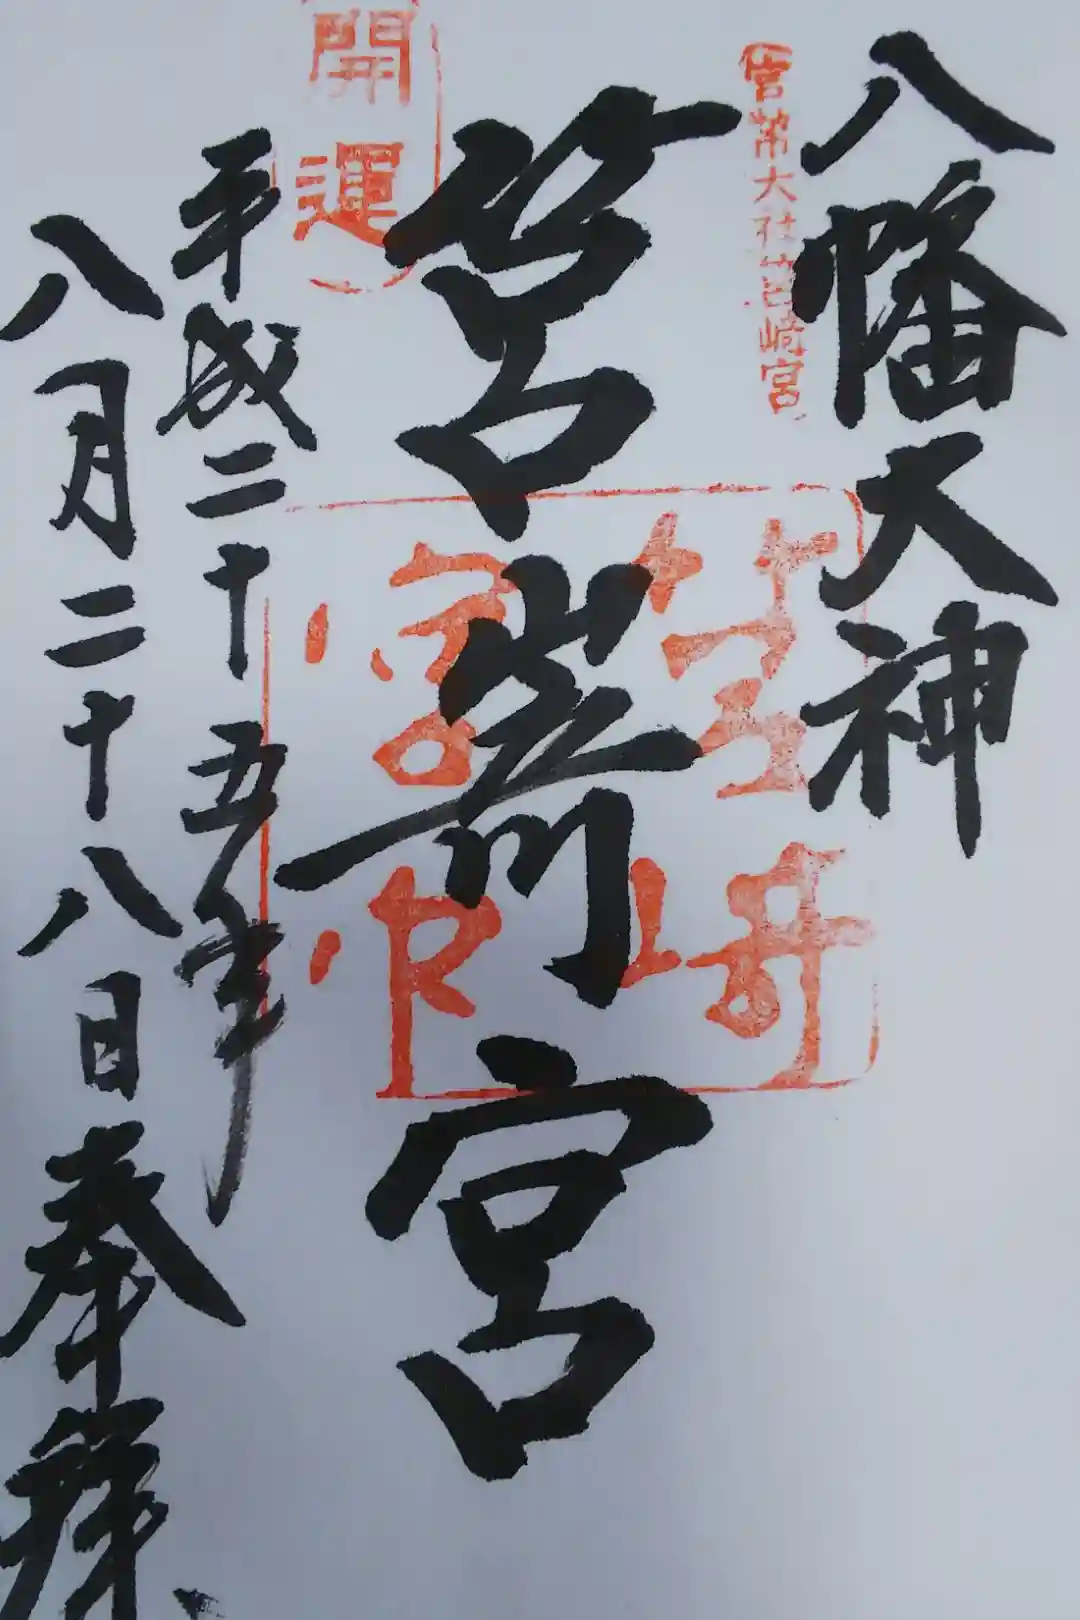 八幡大神
官幣大社筥崎宮
筥崎宮
開運
筥崎宮印
平成二十五年
八月二十八日奉拝